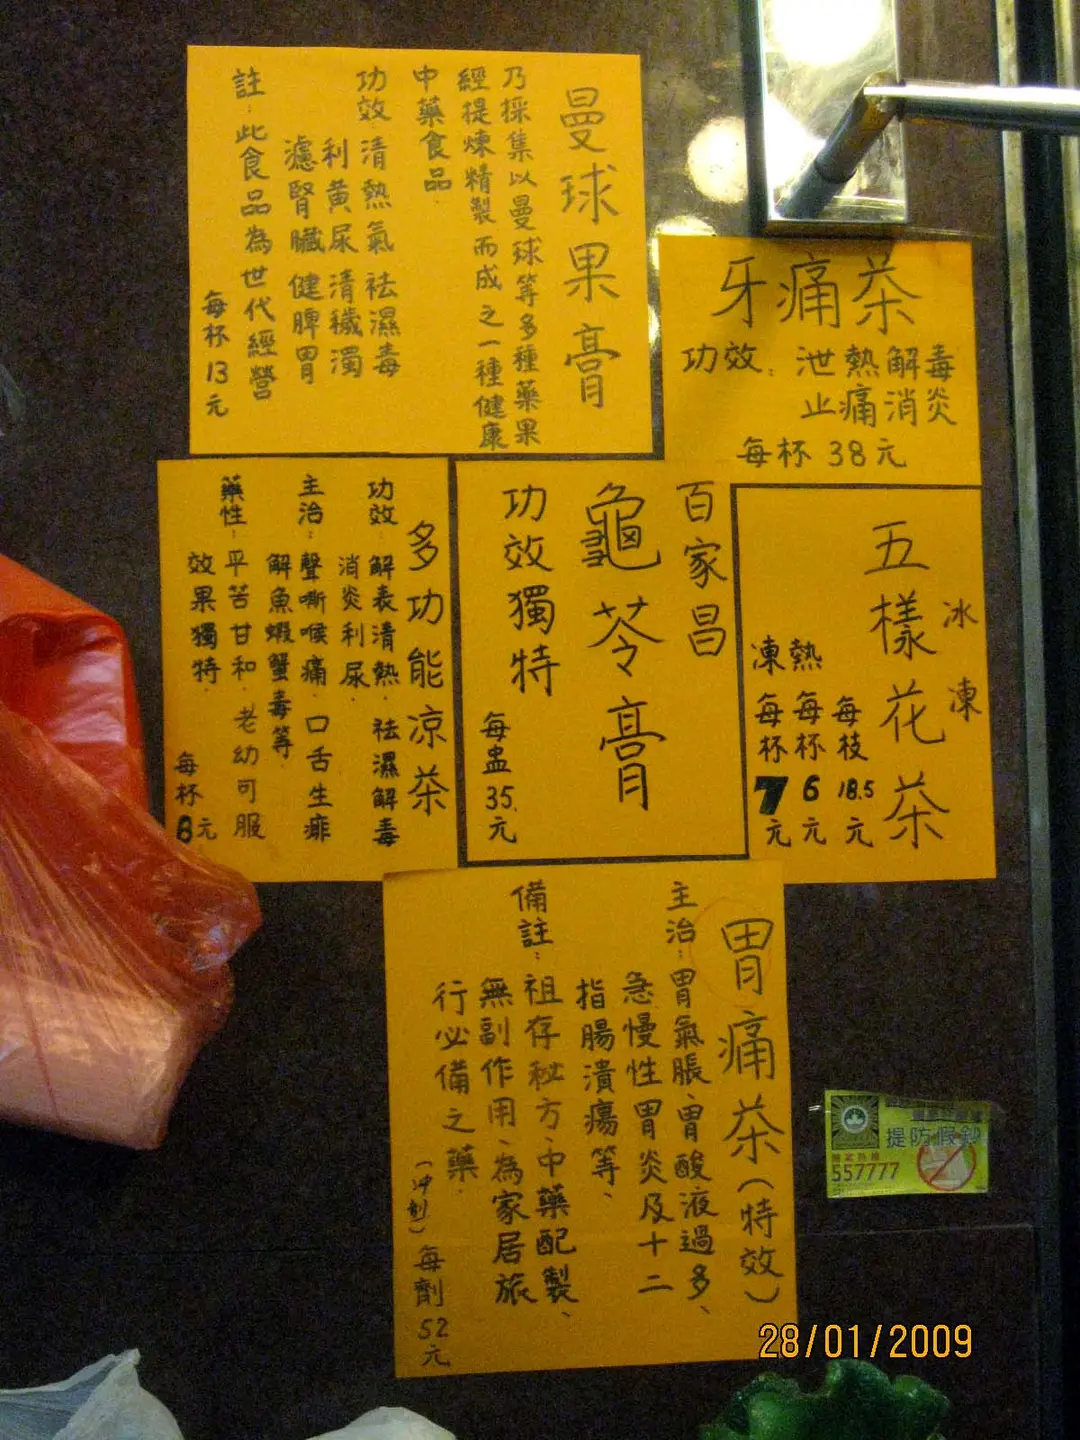 曼球果膏
乃採集以曼球等多種藥果
經提煉精製而成之一種健康
中藥食品
功效:清熱氣 祛濕毒
利黃尿 清穢濁
濾腎臟 健脾胃
註:此食品為世代經營
每杯13元
牙痛茶
功效:泄熱解毒
止痛消炎
每杯38元
多功能涼茶
功效:解表清熱、祛濕解毒
消炎利尿
主治:聲嘶喉痛、口舌生痱
解魚蝦蟹毒等
藥性:平苦甘和、老幼可服
效果獨特.
每杯8元
百家昌
龜苓膏
功效獨特
每盅35.元
五樣花茶
冰凍
每枝18.5元
熱每杯6元
凍每杯7元
胃痛茶(特效)
主治:胃氣脹、胃酸液過多、
急慢性胃炎及十二
指腸潰瘍等、
備註:祖存秘方、中藥配製、
無副作用、為家居旅
行必備之藥.
(沖劑)每劑52元
提防假鈔
557777
28/01/2009